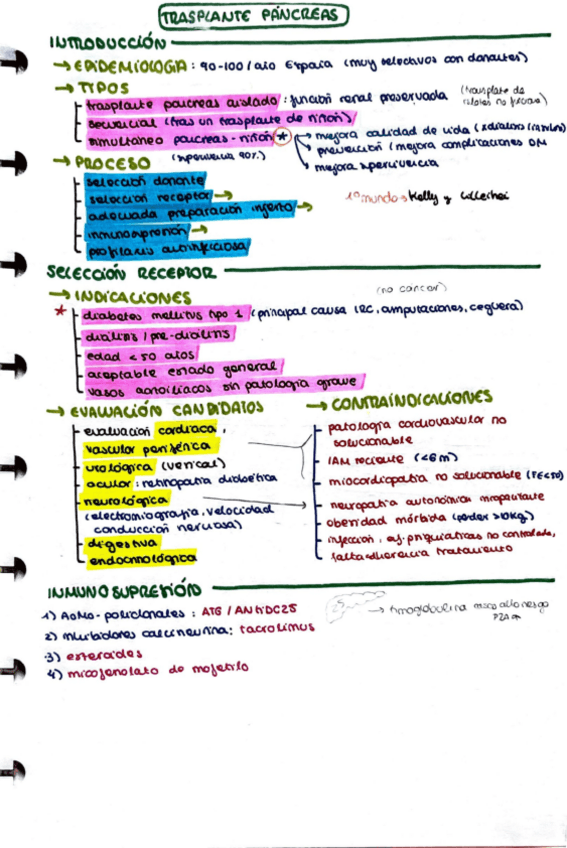 TRASPLANTE PÁNCREAS
INTRODUCCIÓN
→ EPIDEMIOLOGIA: 90-100/año España (muy selectivos con donantes)
→ TIPOS
trasplante páncreas aislado: función renal preservada (trasplante de islotes no)
secuencial (tras un trasplante de riñón)
simultáneo páncreas-riñón * → mejora calidad de vida
(supervivencia 90%) → prevención / mejora complicaciones DM
→ mejora supervivencia
→ PROCESO
selección donante
selección receptor →
adecuada preparación injerto →
inmunosupresión →
profilaxis antiinfecciosa
1º mundo → Kelly y Lillehei
SELECCIÓN RECEPTOR
→ INDICACIONES (no cáncer)
* diabetes mellitus tipo 1 (principal causa IRC, amputaciones, ceguera)
diálisis / pre-diálisis
edad < 50 años
aceptable estado general
vasos aortoilíacos sin patología grave
→ EVALUACIÓN CANDIDATOS
evaluación cardiaca,
vascular periférica
urológica (vesical)
ocular: retinopatía diabética
neurológica
(electromiografía, velocidad
conducción nerviosa)
digestiva
endocrinológica
→ CONTRAINDICACIONES
patología cardiovascular no
solucionable
IAM reciente (<6m)
miocardiopatía no solucionable
neuropatía autonómica incapacitante
obesidad mórbida
infección, enf. psiquiátricas no controlada,
falta adherencia tratamiento
INMUNOSUPRESIÓN
1) AcMo-policlonales: ATG / ANTIDC25
2) inhibidores calcineurina: tacrolimus
3) esteroides
4) micofenolato de mofetilo
→ timoglobulina